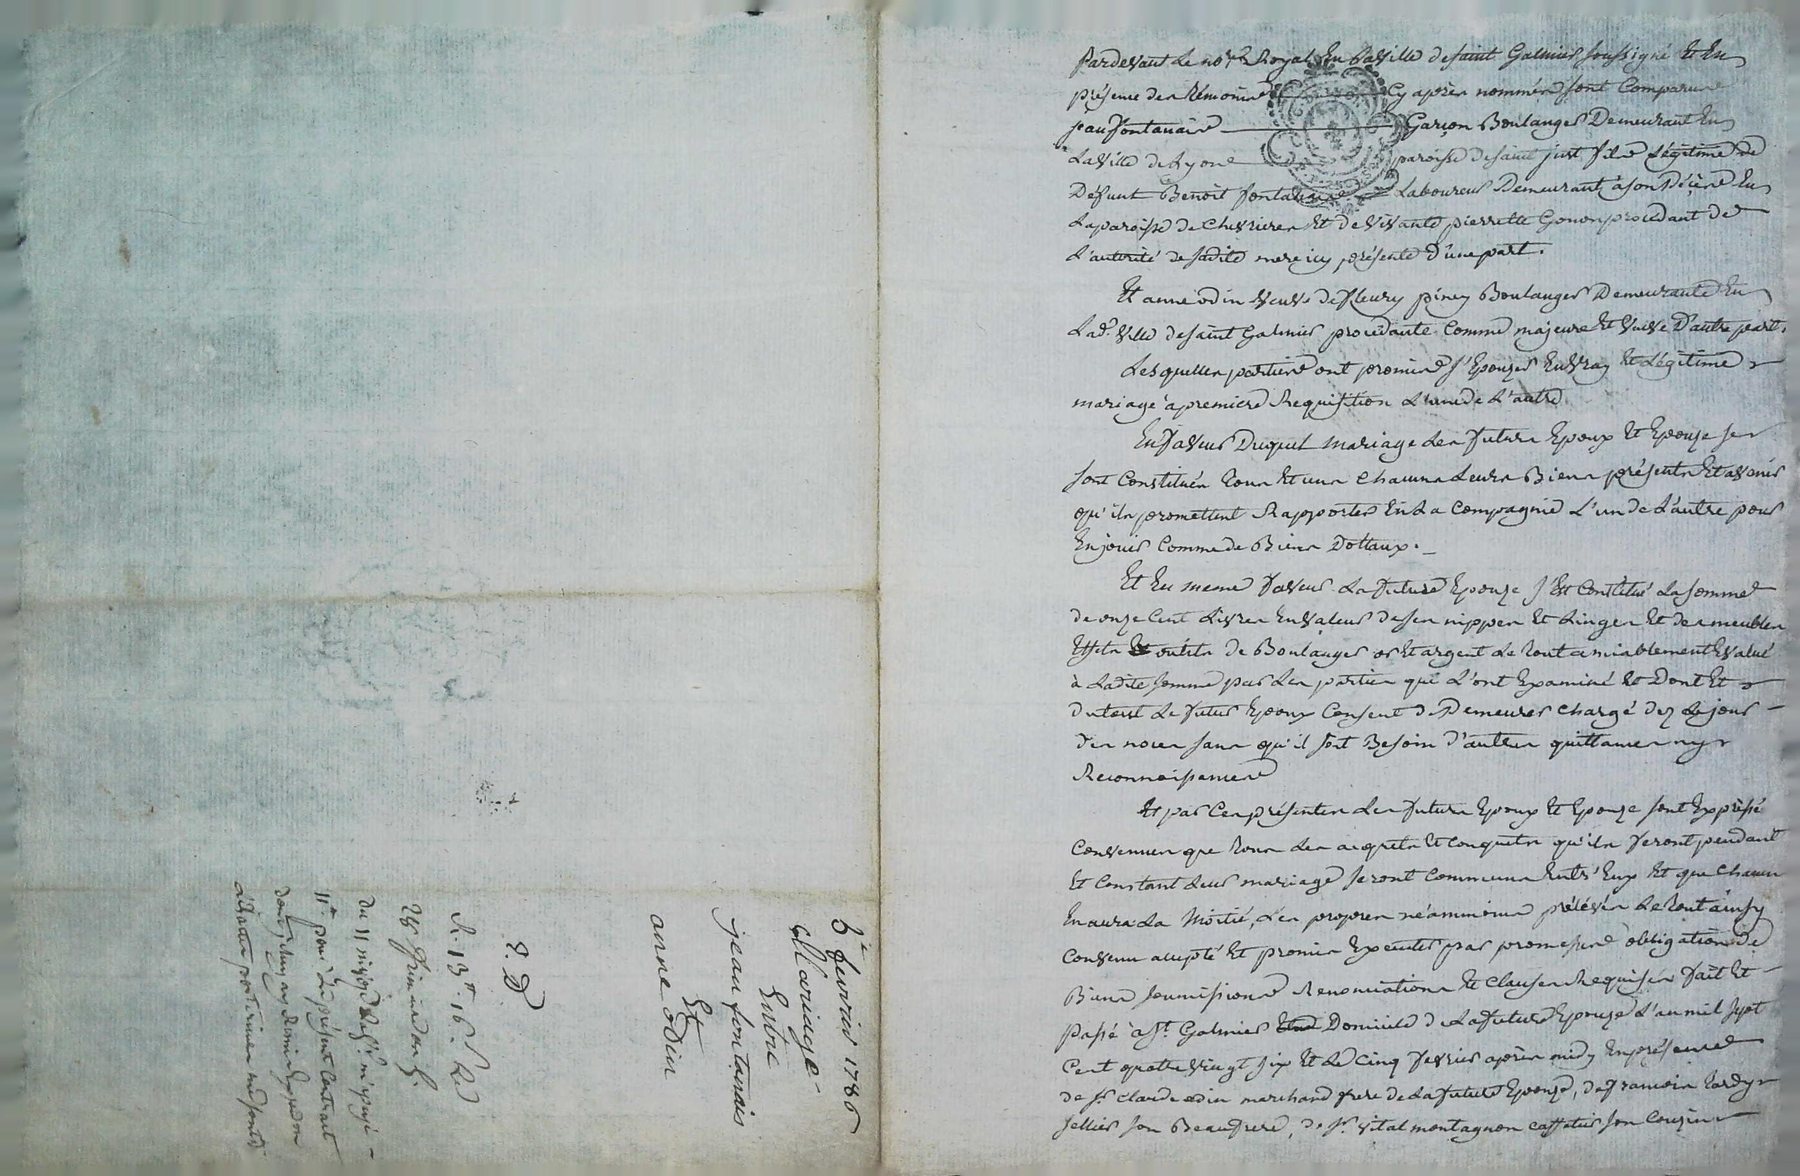 Pardevant Le no.re Royal En La Ville de saint Galmier soussigné Et En
présence des témoins Cy après nommés sont Comparus
jean fontanais Garçon Boulanger Demeurant En
La Ville de Lyon paroisse de saint just fils Légitime de
Défunt Benoit fontanais Laboureur Demeurant à son Décès En
La paroisse de Chevrieres Et de vivante pierrette Gonon procédant de
L'autorité de sadite mere icy présente D'une part.
Et anne odin veuve de fleury piney Boulanger Demeurante En
Lad.e ville de saint Galmier procédante Comme majeure Et Veuve D'autre part.
Lesquelles parties ont promis s'Epouzer En vray Et Légitime
mariage à premiere Requisition L'une de L'autre
En faveur Duquel mariage Les futurs Epoux Et Epouze se
sont Constitués tous Et uns Chacuns Leurs Biens présents Et avenir
qu'ils promettent Rapporter En La Compagnie L'un de L'autre pour
En jouir Comme de Biens Dottaux.
Et En meme faveur La future Epouze s'Est Constitué La somme
de onze Cent Livres En valeur de ses nippes Et Linges Et des meubles
Effets Et outils de Boulanger or Et argent Le tout amiablement Evalué
à Ladite somme par Les parties qui L'ont Examiné Et Dont Et
Du tout Le futur Epoux Consent de Demeurer Chargé dez Le jour
des noces sans qu'il soit Besoin d'autres quittances ny
Reconnoissances
Et par Ces présentes Les futurs Epoux Et Epouze sont Expressé
Convenues que tous Les acquets Et Conquets qu'ils feront pendant
Et Constant Leur mariage seront Communs Entr'Eux Et que Chacun
En aura La Moitié, Les propres néanmoins prélévés Le tout ainsy
Convenu accepté Et promis Executer par promesses obligation de
Biens soumissions Renonciations Et Clauses Requises fait Et
passé à St. Galmier Domicile de La future Epouze L'an mil sept
Cent quatre vingt six Et Le Cinq fevrier après midy En présence
de Sr. Claude odin marchand frere de La future Epouze, de francois tardy
sellier son Beaufrere, de Sr. Vital montagnon caffetier son Cousin
5e fevrier 1786
Mariage
Entre
jean fontanais
Et
anne odin
R. 13.tt 16.s
du 11
11.tt pour Le présent Contrat